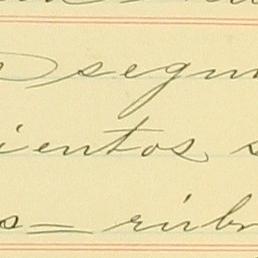 segun
ientos s
s= rúbr